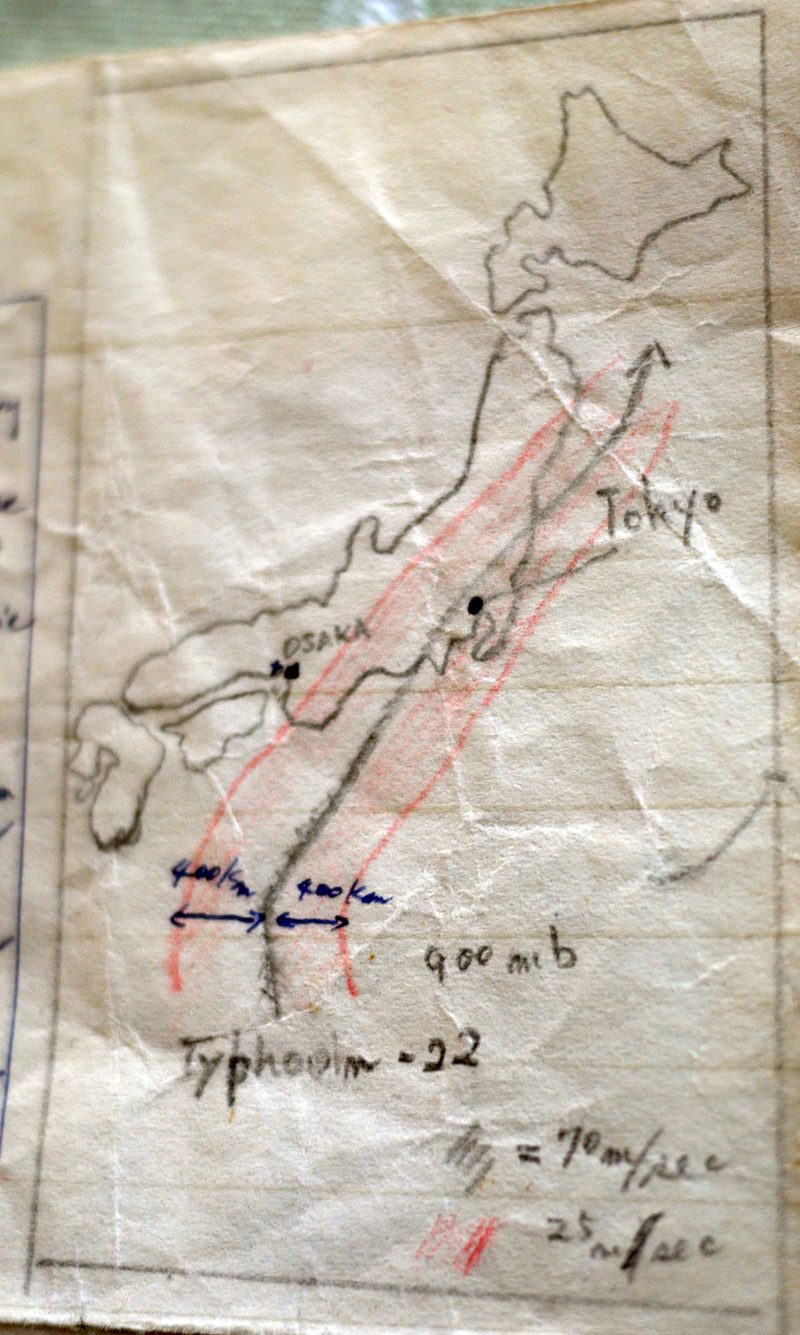 Tokyo
OSAKA
400km 400km
900 mb
Typhoolm - 22
= 70m/sec
25m/sec